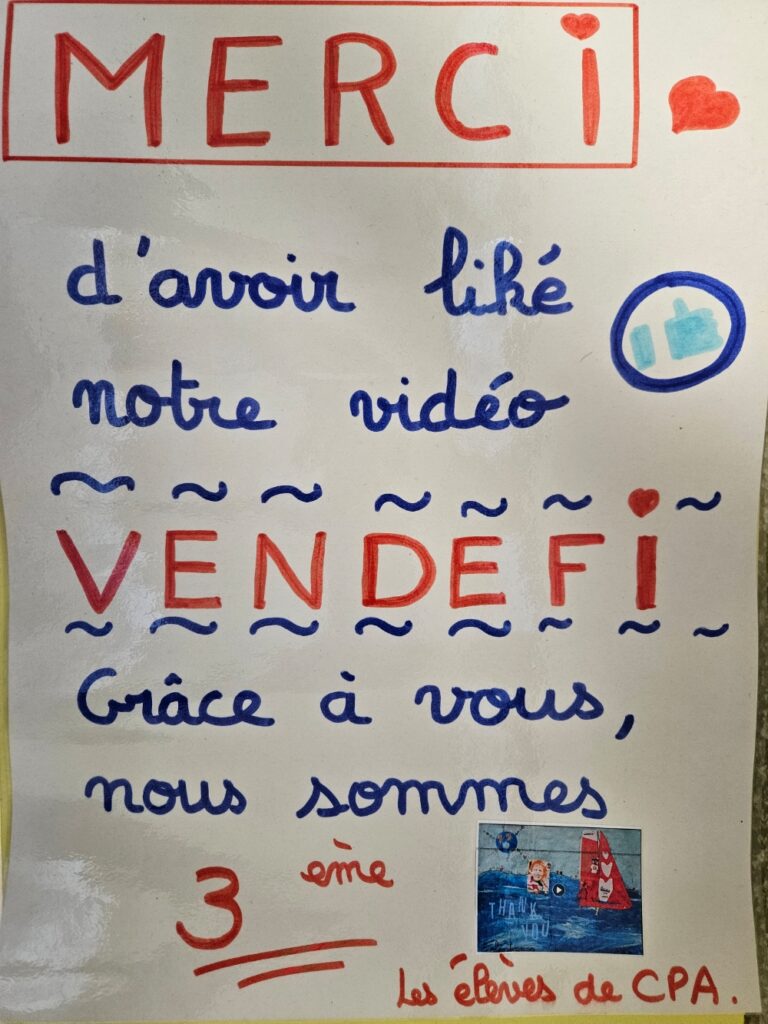 MERCi
d'avoir liké
notre vidéo
VENDEFi
Grâce à vous,
nous sommes
3 ème
THANK
YOU
Les élèves de CPA.